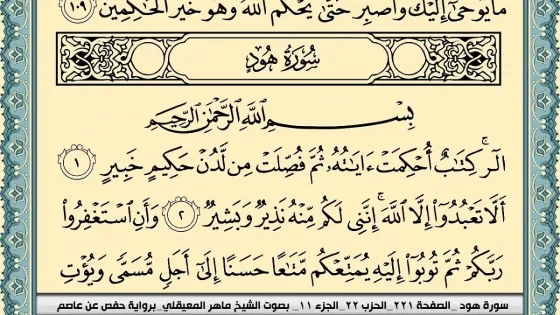 مَا يُوحَىٰٓ إِلَيْكَ وَٱصْبِرْ حَتَّىٰ يَحْكُمَ ٱللَّهُ وَهُوَ خَيْرُ ٱلْحَٰكِمِينَ ١٠٩
سُورَةُ هُودٍ
بِسْمِ ٱللَّهِ ٱلرَّحْمَٰنِ ٱلرَّحِيمِ
الٓر ۚ كِتَٰبٌ أُحْكِمَتْ ءَايَٰتُهُۥ ثُمَّ فُصِّلَتْ مِن لَّدُنْ حَكِيمٍ خَبِيرٍ ١
أَلَّا تَعْبُدُوٓا۟ إِلَّا ٱللَّهَ ۚ إِنَّنِى لَكُم مِّنْهُ نَذِيرٌ وَبَشِيرٌ ٢ وَأَنِ ٱسْتَغْفِرُوا۟
رَبَّكُمْ ثُمَّ تُوبُوٓا۟ إِلَيْهِ يُمَتِّعْكُم مَّتَٰعًا حَسَنًا إِلَىٰٓ أَجَلٍ مُّسَمًّى وَيُؤْتِ
سورة هود _الصفحة ٢٢١_الحزب ٢٢_الجزء ١١_ بصوت الشيخ ماهر المعيقلي_برواية حفص عن عاصم